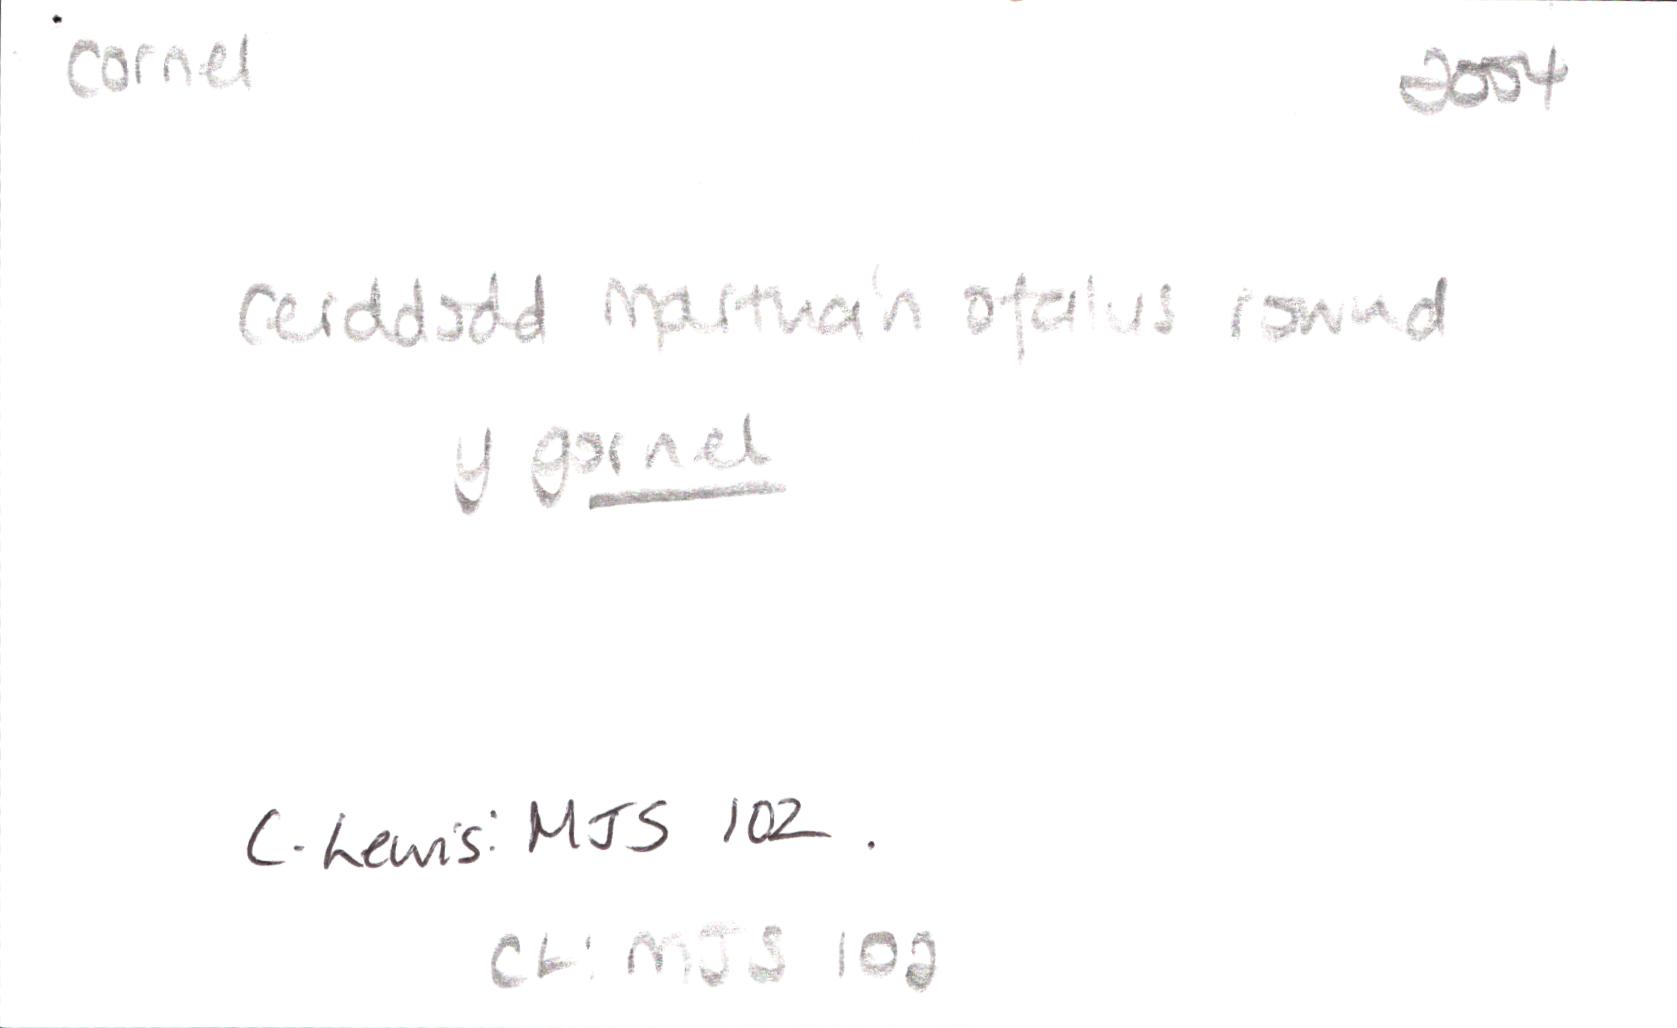 cornel 2004
cerddodd Martha'n ofalus rownd
y gornel
C. Lewis: MJS 102.
CL: MJS 102